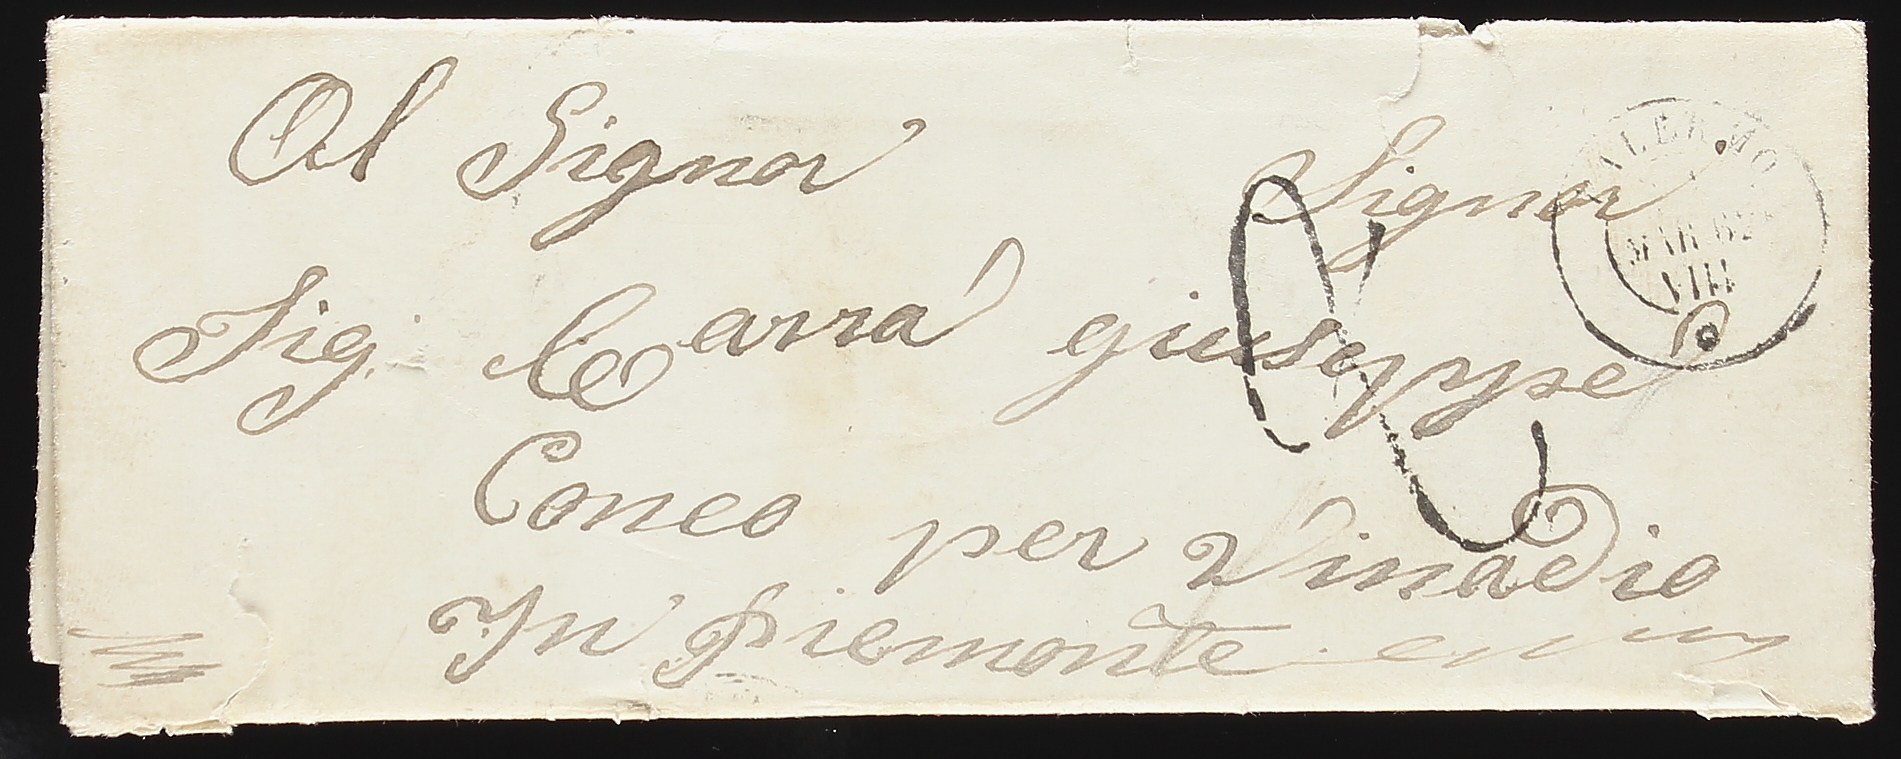 Al Signor Signor
Sig. Carra giuseppe
Coneo per Vinadio
In piemonte
PALERMO
MAR 62
VIII